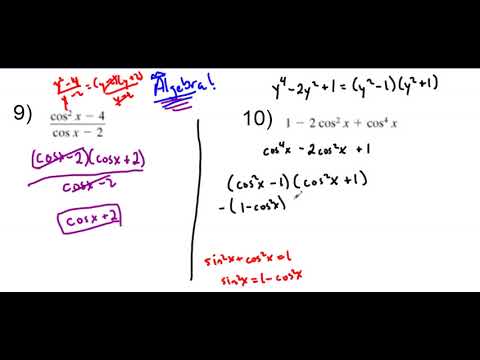 y²-4 / y-2 = (y-2)(y+2) / y-2
Algebra!
y⁴-2y²+1=(y²-1)(y²+1)
9) cos² x − 4 / cos x − 2
(cosx-2)(cosx+2) / cosx-2
cosx+2
10) 1 − 2 cos² x + cos⁴ x
cos⁴x - 2cos²x +1
(cos²x -1)(cos²x +1)
-(1-cos²x)
sin²x+cos²x=1
sin²x=1-cos²x